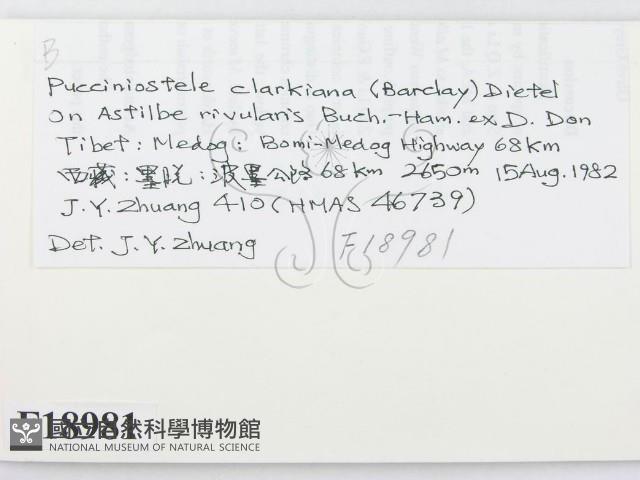 B
Pucciniostele clarkiana (Barclay) Dietel
on Astilbe rivularis Buch.-Ham. ex D. Don
Tibet: Medog: Bomi-Medog Highway 68 km
西藏: 墨脱: 波墨公路 68 km 2650m 15 Aug. 1982
J. Y. Zhuang 410 (HMAS 46739)
Det. J. Y. Zhuang F18981
F18981
國立自然科學博物館
NATIONAL MUSEUM OF NATURAL SCIENCE